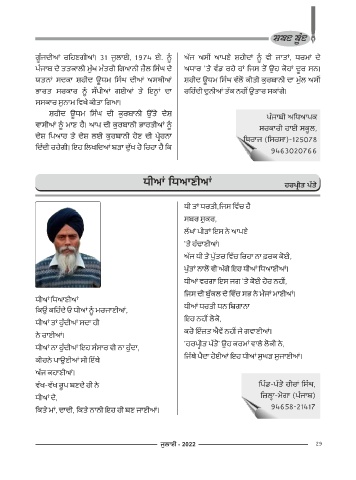 ਸ਼ਬਦ ਬੂੰਦ
ਗੂੰਜਦੀਆਂ ਰਹਿਣਗੀਆਂ। 31 ਜੁਲਾਈ, 1974 ਈ. ਨੂੰ
ਪੰਜਾਬ ਦੇ ਤਤਕਾਲੀ ਮੁੱਖ ਮੰਤਰੀ ਗਿਆਨੀ ਜ਼ੈਲ ਸਿੰਘ ਦੇ
ਯਤਨਾਂ ਸਦਕਾ ਸ਼ਹੀਦ ਊਧਮ ਸਿੰਘ ਦੀਆਂ ਅਸਥੀਆਂ
ਭਾਰਤ ਸਰਕਾਰ ਨੂੰ ਸੌਂਪੀਆਂ ਗਈਆਂ ਤੇ ਇਨ੍ਹਾਂ ਦਾ
ਸਸਕਾਰ ਸੁਨਾਮ ਵਿਖੇ ਕੀਤਾ ਗਿਆ।
ਸ਼ਹੀਦ ਊਧਮ ਸਿੰਘ ਦੀ ਕੁਰਬਾਨੀ ਉੱਤੇ ਦੇਸ਼
ਵਾਸੀਆਂ ਨੂੰ ਮਾਣ ਹੈ। ਆਪ ਦੀ ਕੁਰਬਾਨੀ ਭਾਰਤੀਆਂ ਨੂੰ
ਦੇਸ਼ ਪਿਆਰ ਤੇ ਦੇਸ਼ ਲਈ ਕੁਰਬਾਨੀ ਹੋਣ ਦੀ ਪ੍ਰੇਰਨਾ
ਦਿੰਦੀ ਰਹੇਗੀ। ਇਹ ਲਿਖਦਿਆਂ ਬੜਾ ਦੁੱਖ ਹੋ ਰਿਹਾ ਹੈ ਕਿ
ਅੱਜ ਅਸੀਂ ਆਪਣੇ ਸ਼ਹੀਦਾਂ ਨੂੰ ਵੀ ਜਾਤਾਂ, ਧਰਮਾਂ ਦੇ
ਅਧਾਰ 'ਤੇ ਵੰਡ ਰਹੇ ਹਾਂ ਜਿਸ ਤੋਂ ਉਹ ਕੋਹਾਂ ਦੂਰ ਸਨ।
ਸ਼ਹੀਦ ਊਧਮ ਸਿੰਘ ਵੱਲੋਂ ਕੀਤੀ ਕੁਰਬਾਨੀ ਦਾ ਮੁੱਲ ਅਸੀਂ
ਰਹਿੰਦੀ ਦੁਨੀਆਂ ਤੱਕ ਨਹੀਂ ਉਤਾਰ ਸਕਾਂਗੇ।
ਪੰਜਾਬੀ ਅਧਿਆਪਕ
ਸਰਕਾਰੀ ਹਾਈ ਸਕੂਲ,
(ਸਿਰਸਾ)-125078
9463020766
ਧੀਆਂ ਧਿਆਣੀਆਂ
ਹਰਪ੍ਰੀਤ ਪੱਤੋ
ਧੀਆਂ ਧਿਆਣੀਆਂ
ਕਿਉਂ ਕਹਿੰਦੇ ਓ ਧੀਆਂ ਨੂੰ ਮਰਜਾਣੀਆਂ,
ਧੀਆਂ ਤਾਂ ਹੁੰਦੀਆਂ ਸਦਾ ਹੀ
ਨੇ ਰਾਣੀਆਂ।
ਧੀਆਂ ਨਾ ਹੁੰਦੀਆਂ ਇਹ ਸੰਸਾਰ ਵੀ ਨਾ ਹੁੰਦਾ,
ਕੀਹਨੇ ਪਾਉਣੀਆਂ ਸੀ ਇੱਥੇ
ਅੱਜ ਕਹਾਣੀਆਂ।
ਵੱਖ-ਵੱਖ ਰੂਪ ਬਣਦੇ ਹੀ ਨੇ
ਧੀਆਂ ਦੇ,
ਕਿਤੇ ਮਾਂ, ਦਾਦੀ, ਕਿਤੇ ਨਾਨੀ ਇਹ ਹੀ ਬਣ ਜਾਣੀਆਂ।
ਧੀ ਤਾਂ ਧਰਤੀ,ਜਿਸ ਵਿੱਚ ਹੈ
ਸਬਰ ਸ਼ੁਕਰ,
ਲੱਖਾਂ ਪੀੜਾਂ ਇਸ ਨੇ ਆਪਣੇ
'ਤੇ ਹੰਢਾਣੀਆਂ।
ਅੱਜ ਧੀ ਤੇ ਪੁੱਤਰ ਵਿੱਚ ਰਿਹਾ ਨਾ ਫ਼ਰਕ ਕੋਈ,
ਪੁੱਤਾਂ ਨਾਲੋਂ ਵੀ ਅੱਗੇ ਇਹ ਧੀਆਂ ਧਿਆਣੀਆਂ।
ਧੀਆਂ ਵਰਗਾ ਇਸ ਜਗ 'ਤੇ ਕੋਈ ਹੋਰ ਨਹੀਂ,
ਜਿਸ ਦੀ ਬੁੱਕਲ ਦੇ ਵਿੱਚ ਸਭ ਨੇ ਮੌਜਾਂ ਮਾਣੀਆਂ।
ਧੀਆਂ ਧਰਤੀ ਧਨ ਬਿਗਾਨਾ
ਇਹ ਨਹੀਂ ਲੋਕੋ,
ਕਰੋ ਇੱਜ਼ਤ ਐਵੇਂ ਨਹੀਂ ਜੇ ਗਵਾਣੀਆਂ।
'ਹਰਪ੍ਰੀਤ ਪੱਤੋ' ਉਹ ਕਰਮਾਂ ਵਾਲੇ ਲੋਕੀ ਨੇ,
ਜਿੱਥੇ ਪੈਦਾ ਹੋਈਆਂ ਇਹ ਧੀਆਂ ਸੁਘੜ ਸੁਜਾਣੀਆਂ।
ਪਿੰਡ-ਪੱਤੋ ਹੀਰਾ ਸਿੰਘ,
ਜ਼ਿਲ੍ਹਾ-ਮੋਗਾ (ਪੰਜਾਬ)
94658-21417
ਜੁਲਾਈ - 2022
29